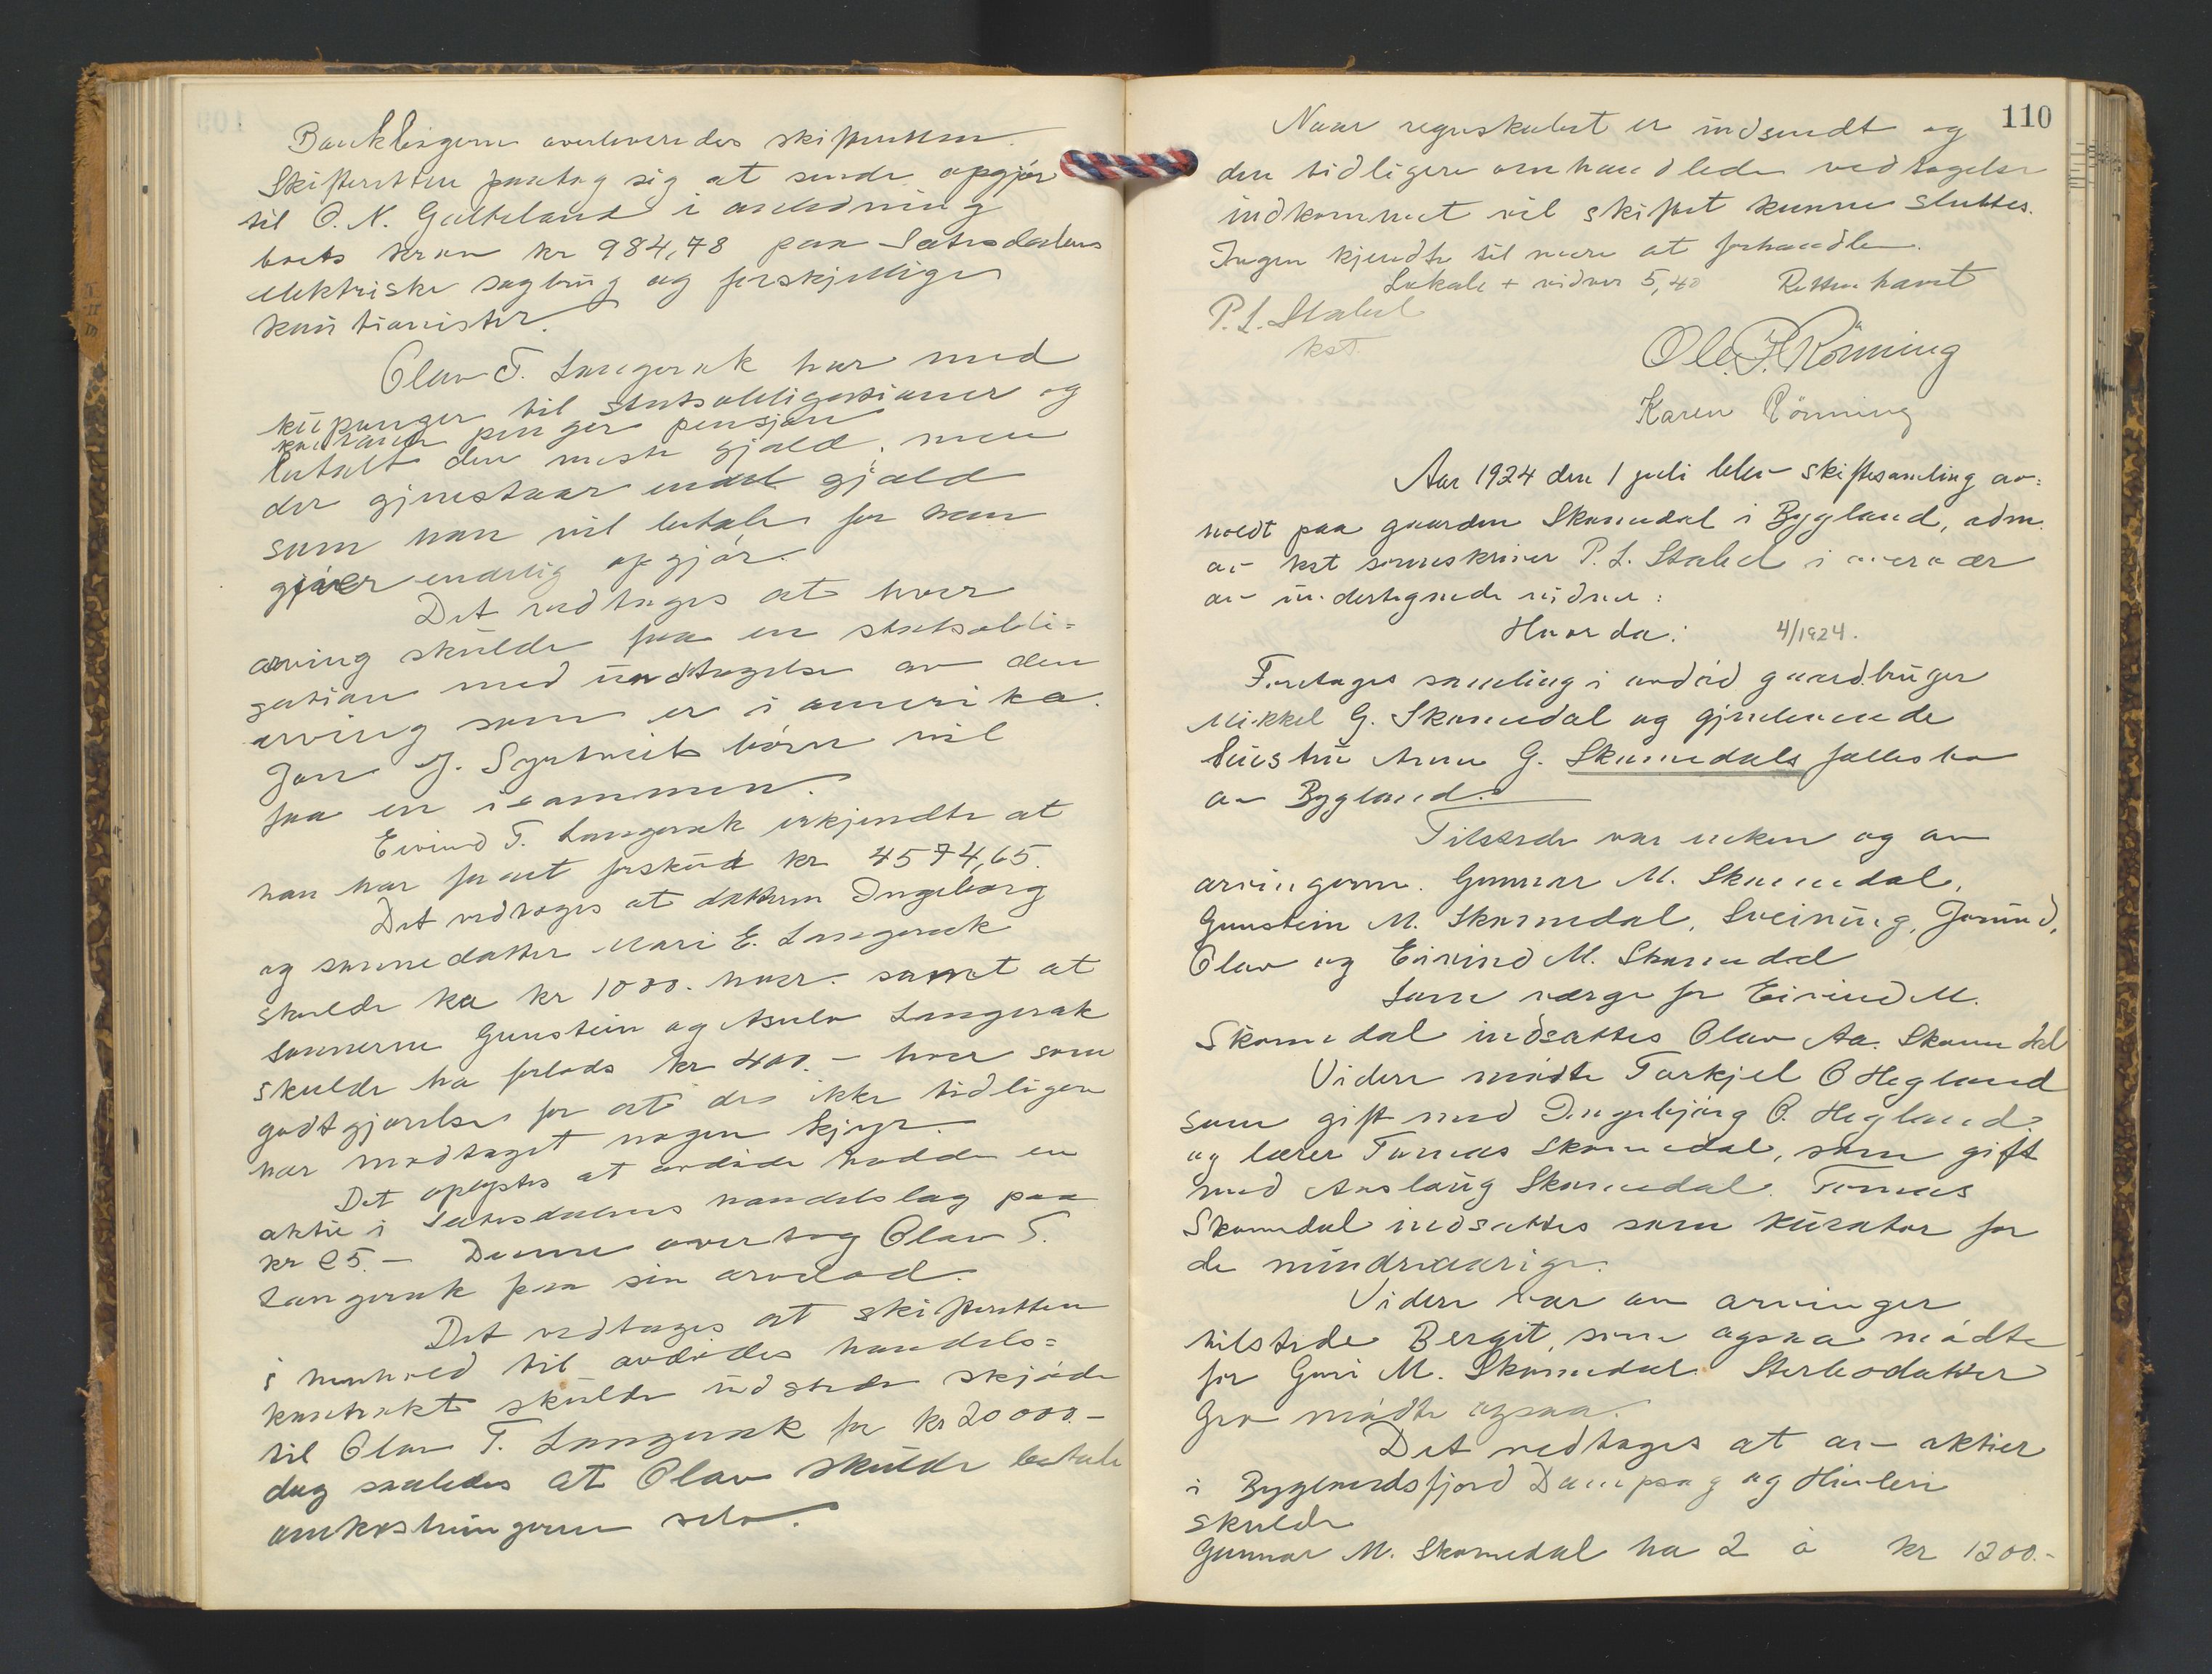 Bankbøgerne overleveredes skifteretten.
Skifteretten paatog sig at sende opgjør
til O. N. Galteland i anledning
boets krav kr 984,78 paa Sætesdalens
elektriske sagbrug og forskjellige
kautionister.
Olav T. Langerak har med
kuponger til statsobligationer og
penger pensjon
betalt den meste gjæld, men
der gjenstaar endel gjæld
som han vil betale før han
giver endelig opgjør.
Det vedtages at hver
arving skulde faa en statsobli=
gation med undtagelse av den
arving som er i amerika.
Jon J. Syrtveits børn vil
faa en isammen.
Eivind T. Langerak erkjendte at
han har faaet forskud kr 4574,65.
Det vedtoges at datteren Ingeborg
og sønnedatter Mari E. Langerak
skulde ha kr 1000. hver. samt at
sønnerne Gunstein og Asulv Langerak
skulde ha forlods kr 400.- hver som
godtgjørelse for at de ikke tidligere
har modtaget nogen kjyr.
Det oplystes at avdøde hadde en
aktie i Sætesdalens handelslag paa
kr 25.- Denne overtog Olav T.
Langerak paa sin arvelod.
Det vedtages at skifteretten
i henhold til avdødes handels=
kontrakt skulde udstede skjøde
til Olav T. Langerak for kr 20000.-
dog saaledes at Olav skulde betale
omkostningerne selv.
110
Naar regnskabet er indsendt og
den tidligere omhandlede vedtagelse
indkommet vil skiftet kunne sluttes.
Ingen kjendte til mere at forhandle.
Lokale + vidner 5,40 Retten hævet
P. L. Stabel
kst.
Ole P. Rönning
Karen Rönning
Aar 1924 den 1 juli blev skiftesamling av=
holdt paa gaarden Skomedal i Bygland, adm.
av kst sorenskriver P. L. Stabel i overvær
av undertegnede vidner:
Hvorda: 4/1924.
Foretages samling i avdød gaardbruger
Mikkel G. Skomedal og gjenlevende
hustru Anne G. Skomedals fællesbo
av Bygland.
Tilstede var enken og av
arvingerne. Gunnar M. Skomedal,
Gunstein M. Skomedal, Sveinung, Jorund,
Olav og Eivind M. Skomedal
Som værge for Eivind M.
Skomedal indsattes Olav Aa. Skomedal
Videre mødte Torkjel O Hegland
som gift med Ingebjørg O. Hegland
og lærer Tomas Skomedal, som gift
med Aaslaug Skomedal. Tomas
Skomedal indsattes som kurator for
de mindreaarige.
Videre var av arvinger
tilstede Bergit, som ogsaa mødte
for Guri M. Skomedal. Sterbodatter
Gro mødte ogsaa.
Det vedtages at av aktier
i Byglandsfjord Dampsag og Høvleri
skulde
Gunnar M. Skomedal ha 2 à kr 1200.-